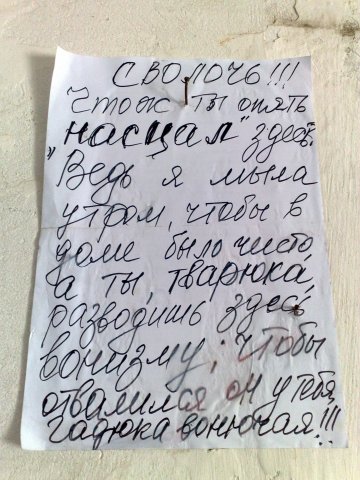 СВОЛОЧЬ!!!
Чтож ты опять
"насцал" здесь.
Ведь я мыла
утром, чтобы в
доме было чисто
а ты, тварюка,
разводишь здесь
вонизму; чтобы
отвалился он у тебя,
гадюка вонючая!!!